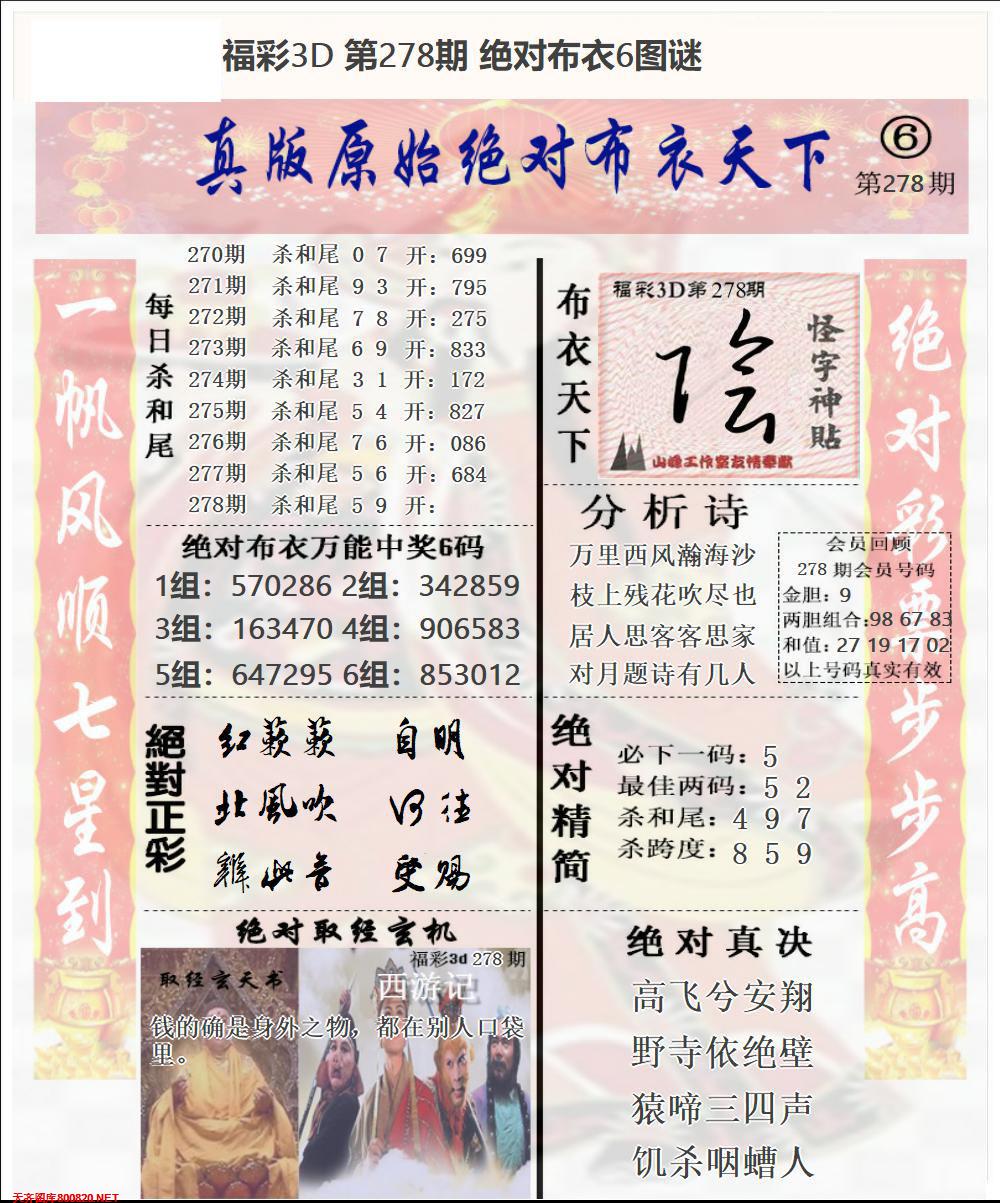 福彩3D 第278期 绝对布衣6图谜
真版原始绝对布衣天下
⑥
第278期
一帆风顺七星到
每日杀和尾
270期 杀和尾 0 7 开：699
271期 杀和尾 9 3 开：795
272期 杀和尾 7 8 开：275
273期 杀和尾 6 9 开：833
274期 杀和尾 3 1 开：172
275期 杀和尾 5 4 开：827
276期 杀和尾 7 6 开：086
277期 杀和尾 5 6 开：684
278期 杀和尾 5 9 开：
绝对布衣万能中奖6码
1组：570286 2组：342859
3组：163470 4组：906583
5组：647295 6组：853012
絕對正彩
红蔌蔌 自明
北風吹 河往
雞此音 更赐
绝对取经玄机
福彩3d 278期
取经玄天书
西游记
钱的确是身外之物，都在别人口袋
里。
布衣天下
福彩3D第278期
怪字神貼
山峰工作室友情奉献
分析诗
万里西风瀚海沙
枝上残花吹尽也
居人思客客思家
对月题诗有几人
会员回顾
278期会员号码
金胆：9
两胆组合:98 67 83
和值：27 19 17 02
以上号码真实有效
绝对精简
必下一码：5
最佳两码：5 2
杀和尾：4 9 7
杀跨度：8 5 9
绝对真决
高飞兮安翔
野寺依绝壁
猿啼三四声
饥杀咽螬人
绝对彩票步步高
天齐图库800820.NET